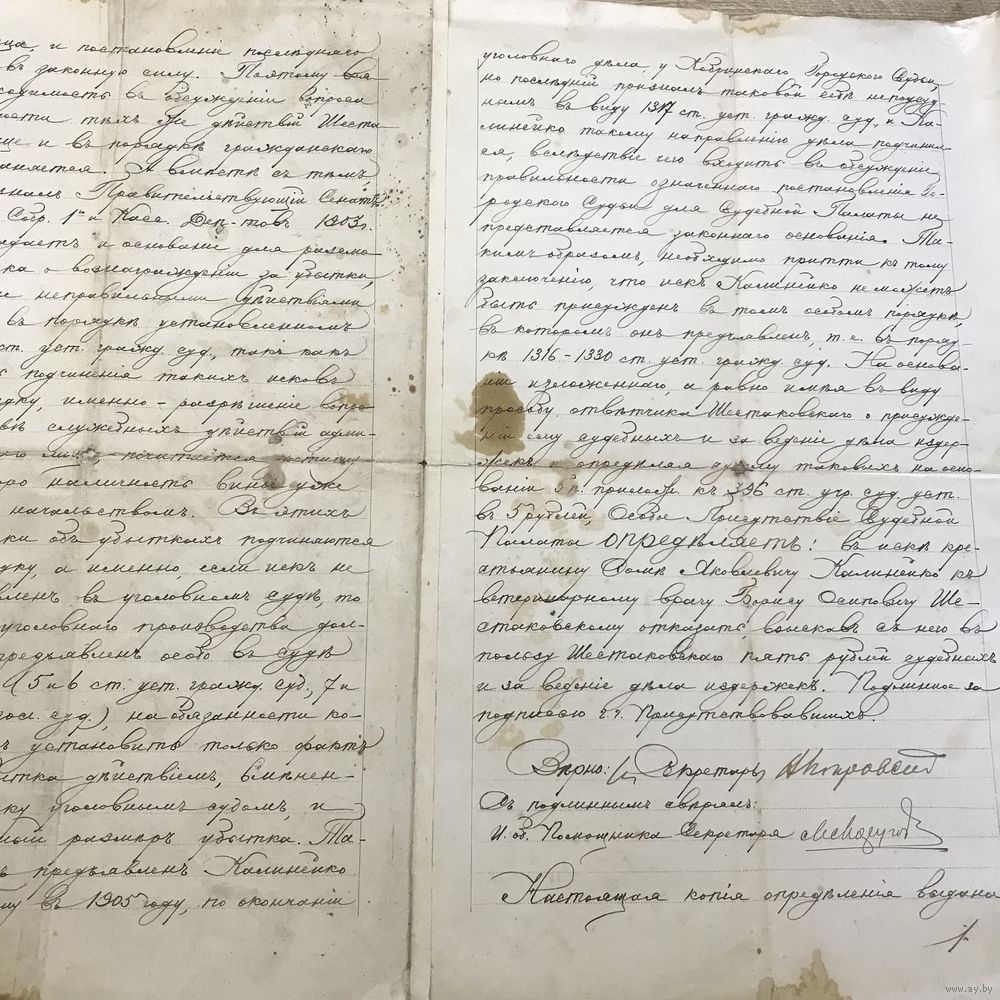 и постановленіе послѣдняго
въ законную силу. Поэтому вся
ходимость въ обсужденіи вопроса
ности тѣхъ же дѣйствій Шеста-
ше и въ порядкѣ гражданскаго
няется. А вмѣстѣ съ тѣмъ
зналъ Правительствующій Сенатъ
Собр. 1го и Касс. Деп-товъ 1903 г.
адаетъ и основаніе для разсмо-
ка о вознагражденіи за убытки,
е неправильными дѣйствіями
въ порядкѣ установленномъ
ст. уст. гражд. суд., такъ какъ
подчиненія такихъ исковъ
дку, именно - разрѣшеніе вопро-
служебныхъ дѣйствій адми-
ого лица, - почитается
оро наличность вины уже
начальствомъ. Въ этихъ
ки объ убыткахъ подчиняются
дку, а именно, если искъ не
вленъ въ уголовномъ судѣ, то
уголовнаго производства дол-
предъявленъ особо въ судѣ
(5 и 6 ст. уст. гражд. суд., 7 и
суд.), на обязанности ко-
ъ установить только фактъ
ытка дѣйствіемъ, вмѣнен-
ку уголовнымъ судомъ, и
ный размѣръ убытка. Та-
ъ предъявленъ Калинёйко
му въ 1905 году, по окончаніи
уголовнаго дѣла, у Кобринскаго Городского Судьи,
но послѣдній призналъ таковой себѣ неподсуд-
нымъ въ виду 1317 ст. уст. гражд. суд., и Ка-
линёйко такому направленію дѣла подчинил-
ся, вслѣдствіе чего входить въ обсужденіе
правильности означеннаго постановленія Го-
родского Судьи для Судебной Палаты не
представляется законнаго основанія. Та-
кимъ образомъ, необходимо притти къ тому
заключенію, что искъ Калинёйко не можетъ
быть присужденъ въ томъ особомъ порядкѣ,
въ которомъ онъ предъявленъ, т. е. въ поряд-
кѣ 1316-1330 ст. уст. гражд. суд. На основа-
ніи изложеннаго, а равно имѣя въ виду
просьбу отвѣтчика Шестаковскаго о присужде-
ніи ему судебныхъ и за веденіе дѣла издер-
жекъ и опредѣляя сумму таковыхъ на осно-
ваніи 5 п. прилож. къ 396 ст. учр. суд. уст.
въ 5 рублей, Особое Присутствіе Судебной
Палаты опредѣляетъ: въ искѣ кре-
стьянину Ѳомѣ Яковлевичу Калинёйко къ
ветеринарному врачу Борису Осиповичу Ше-
стаковскому отказать, взыскавъ съ него въ
пользу Шестаковскаго пять рублей судебныхъ
и за веденіе дѣла издержекъ. Подлинное за
подписью г.г. Присутствовавшихъ.
Вѣрно: Секретарь
Съ подлиннымъ свѣрялъ:
И. об. Помощника Секретаря
Настоящая копія опредѣленія выдана
www.ay.by